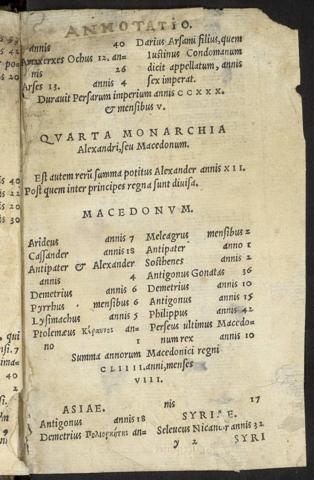 ANNOTATIO.
annis 40
Artaxerxes Ochus 12. an=
nis 26
Arses 13. annis 4
Darius Arsami filius, quem
Iustinus Condomanum
dicit appellatum, annis
sex imperat.
Durauit Persarum imperium annis CCXXX.
& mensibus v.
QVARTA MONARCHIA
Alexandri, seu Macedonum.
Est autem rerū summa potitus Alexander annis XII.
Post quem inter principes regna sunt diuisa.
MACEDONVM.
Arideus annis 7
Cassander annis 18
Antipater & Alexander
annis 4
Demetrius annis 6
Pyrrhus mensibus 6
Lysimachus annis 5
Ptolemæus Κέραυνος an=
no 1
Meleagrus mensibus 2
Antipater anno 1
Sosthenes annis 2
Antigonus Gonatas 36
Demetrius annis 10
Antigonus annis 15
Philippus annis 42
Perseus ultimus Macedo=
num rex annis 10
Summa annorum Macedonici regni
CLIIII. anni, menses
VIII.
ASIAE.
Antigonus annis 18
Demetrius Πολιορκητὴς an=
nis 17
SYRIAE.
Seleucus Nicanor annis 32
y 2 SYRI